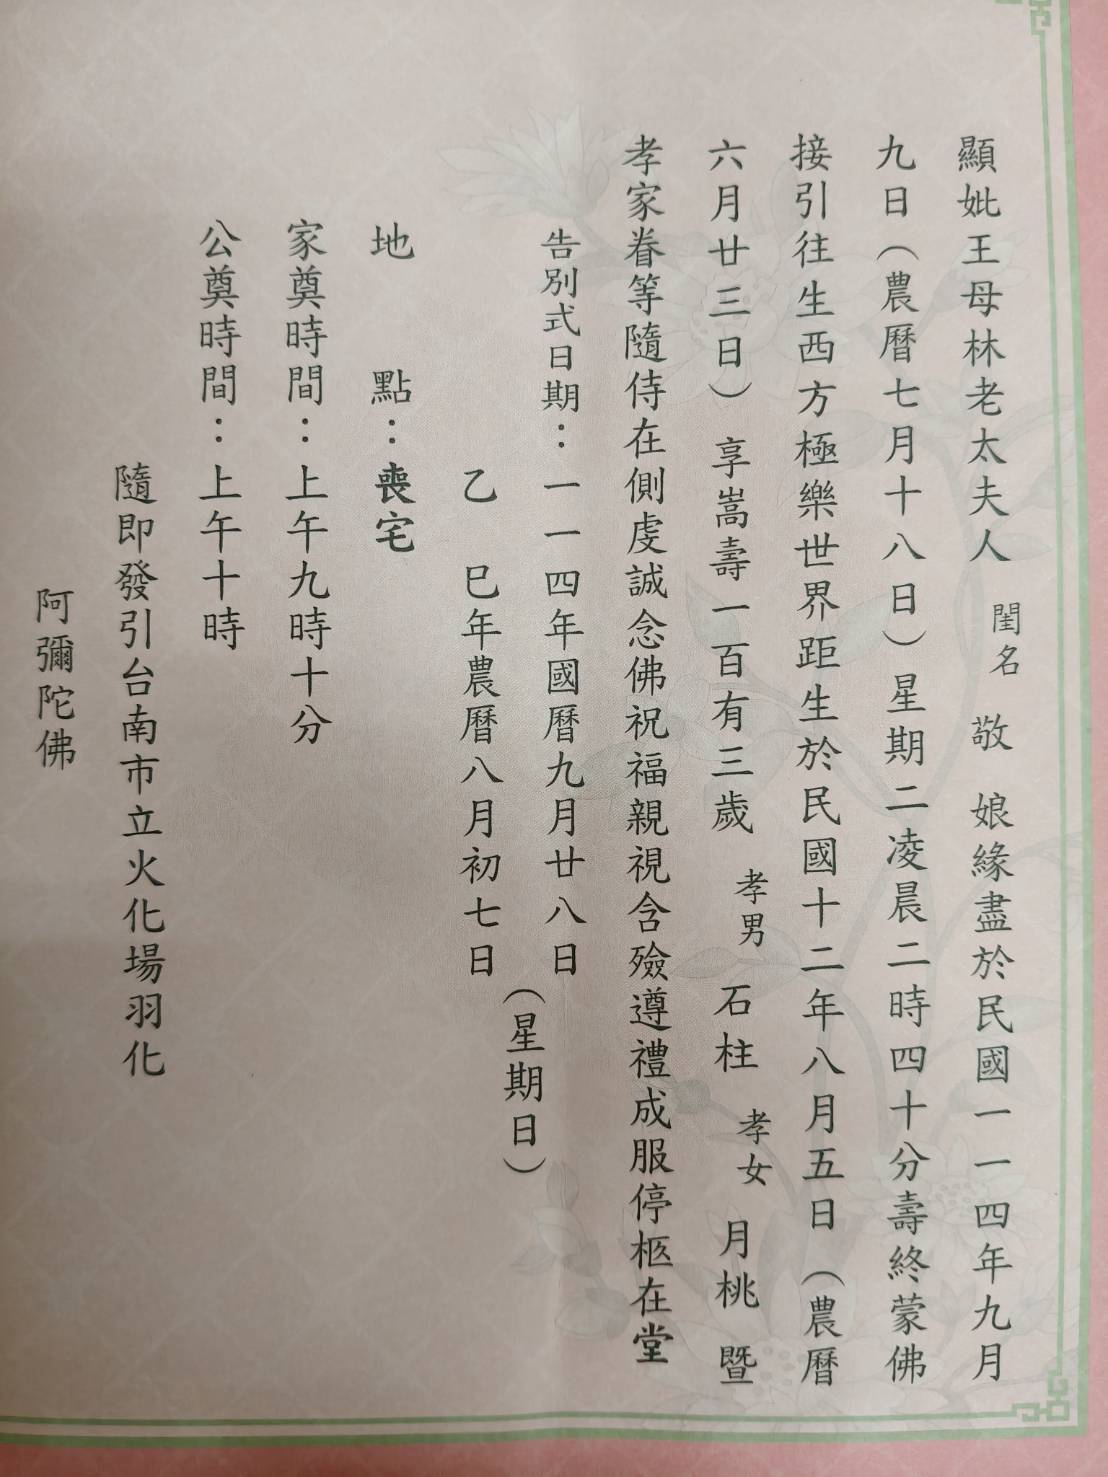 顯妣王母林老太夫人 閨名 敬 娘緣盡於民國一一四年九月
九日（農曆七月十八日）星期二凌晨二時四十分壽終蒙佛
接引往生西方極樂世界距生於民國十二年八月五日（農曆
六月廿三日）享嵩壽一百有三歲 孝男 石柱 孝女 月桃 暨
孝家眷等隨侍在側虔誠念佛祝福親視含殮遵禮成服停柩在堂
告別式日期：一一四年國曆九月廿八日
乙巳年農曆八月初七日
（星期日）
地 點：喪宅
家奠時間：上午九時十分
公奠時間：上午十時
隨即發引台南市立火化場羽化
阿彌陀佛